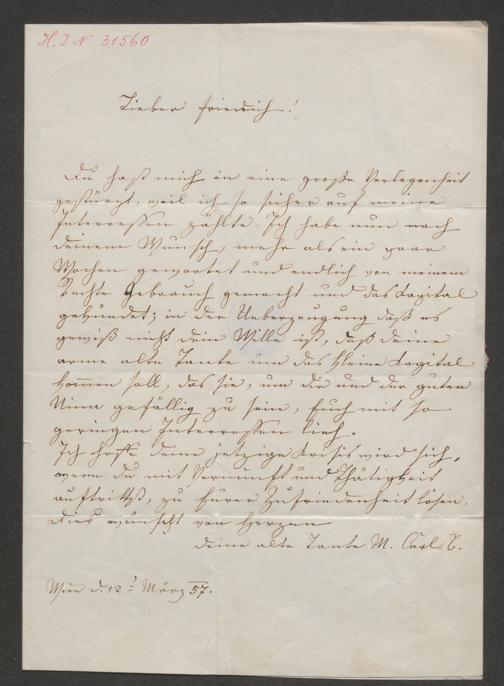 H. I. N. 31560
Lieber Friedrich!
Du hast mich in eine große Verlegenheit
gestürzt, weil ich so sicher auf meine
Interressen zählte. Ich habe nun nach
deinem Wunsch, mehr als ein paar
Wochen gewartet und endlich von meinem
Rechte Gebrauch gemacht und das Kapital
gekündet; in der Ueberzeugung daß es
gewiß nicht dein Wille ist, daß deine
arme alte Tante um das kleine Kapital
kommen soll, das sie, um dir und der guten
Nina gefällig zu sein, Euch mit so
geringen Interressen lieh.
Ich hoffe deine jetzige Krisis wird sich,
wenn du mit Vernunft und Thätigkeit
auftrittst, zu Eurer Zufriedenheit lösen.
Dies wünscht von Herzen
deine alte Tante M.
Wien d. 12t März 57.